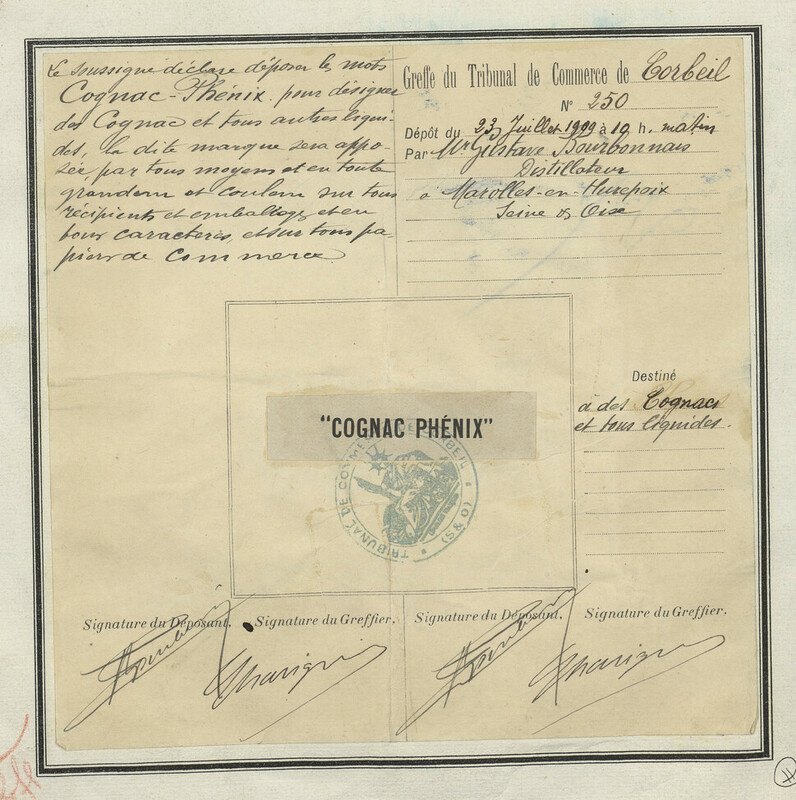 Le soussigné déclare déposer les mots
Cognac-Phénix pour désigner
des Cognac et tous autres liqui-
des, la dite marque sera appo-
sée, par tous moyens et en toute
grandeur et couleur sur tous
récipients et emballages et en
tous caractères, et sur tous pa-
piers de Commerce
Greffe du Tribunal de Commerce de Corbeil
N° 250
Dépôt du 23 Juillet 1909 à 10 h. matin
Par Mr Gustave Bourbonnais
Distillateur
à Marolles-en-Hurepoix
Seine & Oise
"COGNAC PHÉNIX"
TRIBUNAL DE COMMERCE DE CORBEIL (S & O)
Destiné
à des Cognacs
et tous liquides.
Signature du Déposant.
Signature du Greffier.
Signature du Déposant.
Signature du Greffier.